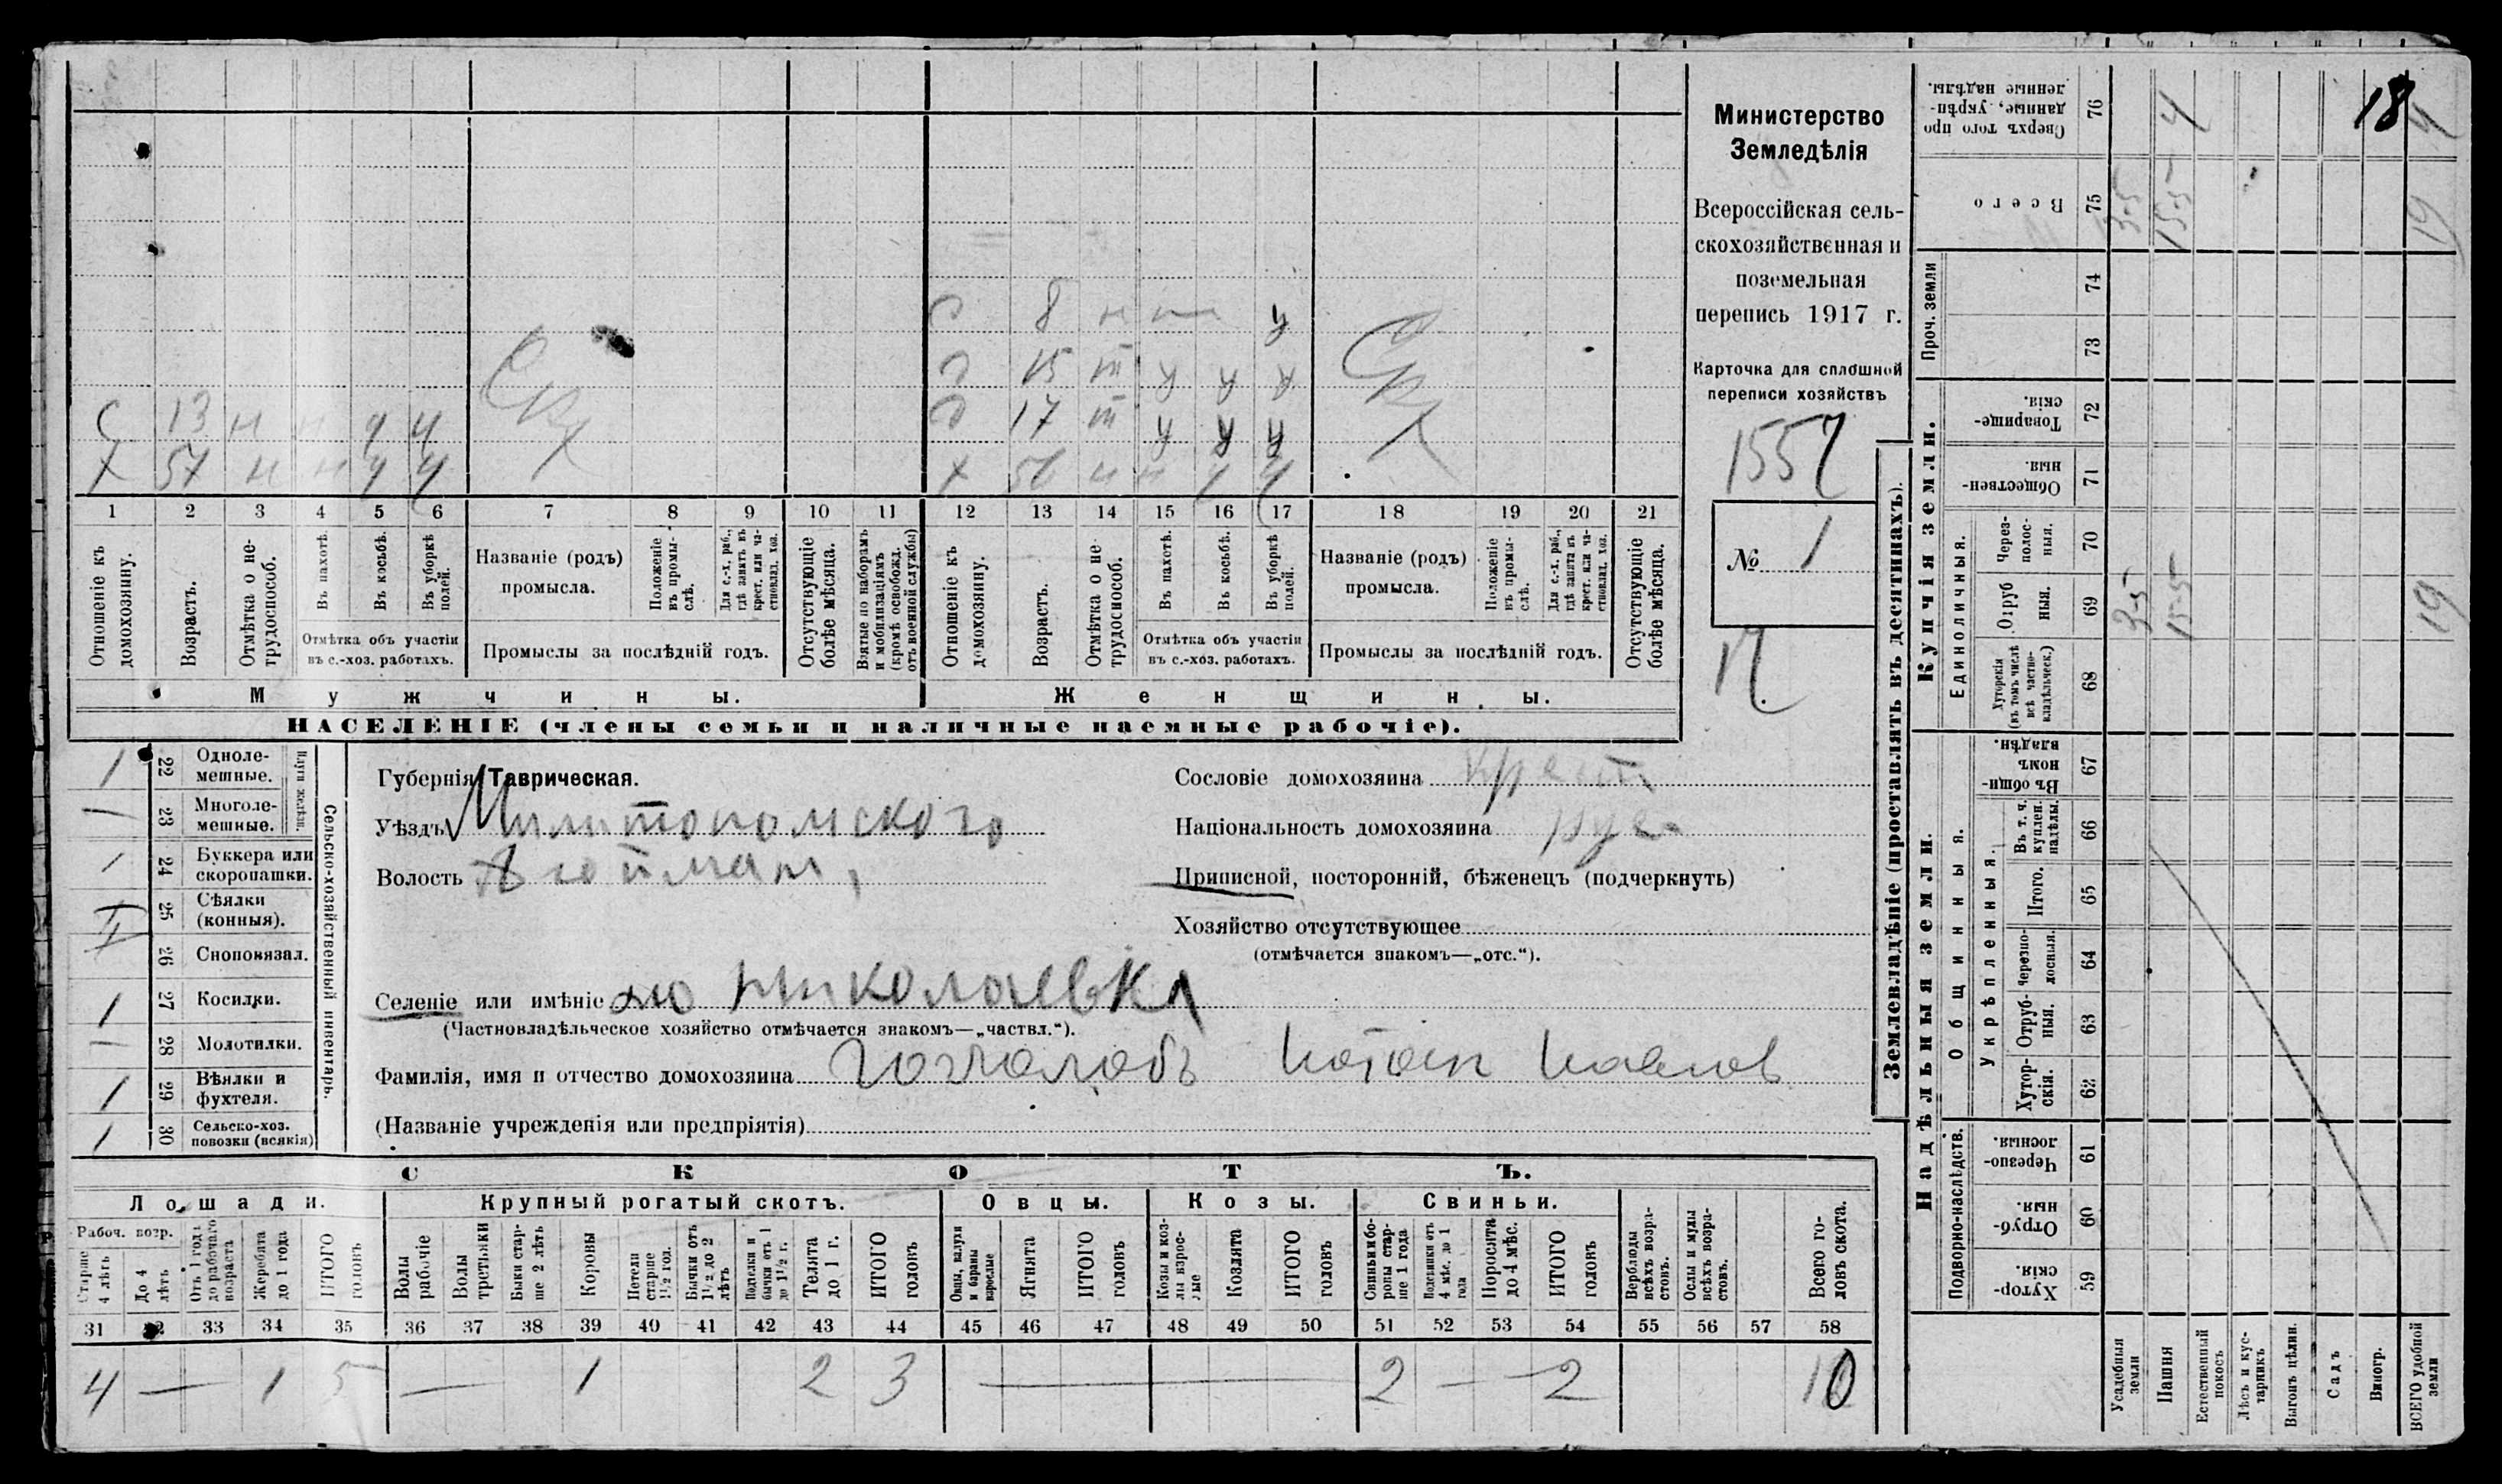 Министерство
Земледѣлія
Всероссійская сель-
скохозяйственная и
поземельная
перепись 1917 г.
Карточка для сплошной
переписи хозяйствъ
1557
№ 1
С 13 н н у у
Х 57 н н у у
Д 8 н — у
Д 15 п у у у
Д 17 п у у у
Х 50 н н у у
1 2 3 4 5 6 7 8 9 10 11 12 13 14 15 16 17 18 19 20 21
Отношеніе къ домохозяину.
Возрастъ.
Отмѣтка о не-трудоспособ.
Въ пахотѣ.
Въ косьбѣ.
Въ уборкѣ полей.
Отмѣтка объ участіи
въ с.-хоз. работахъ.
Названіе (родъ)
промысла.
Положеніе въ промы-слѣ.
Для с.-х. раб., гдѣ занятъ въ крест. или ча-стновлад. хоз.
Промыслы за послѣдній годъ.
Отсутствующіе болѣе мѣсяца.
Взятые по наборамъ и мобилизаціямъ (кромѣ освобожд. отъ военной службы)
Отношеніе къ домохозяину.
Возрастъ.
Отмѣтка о не-трудоспособ.
Въ пахотѣ.
Въ косьбѣ.
Въ уборкѣ полей.
Отмѣтка объ участіи
въ с.-хоз. работахъ.
Названіе (родъ)
промысла.
Положеніе въ промы-слѣ.
Для с.-х. раб., гдѣ занята въ крест. или ча-стновлад. хоз.
Промыслы за послѣдній годъ.
Отсутствующіе болѣе мѣсяца.
Мужчины.
Женщины.
НАСЕЛЕНІЕ (члены семьи и наличные наемные рабочіе).
Сельско-хозяйственный инвентарь.
Плуги желѣзн.
1 22 Одноле-мешные.
— 23 Многоле-мешные.
1 24 Буккера или скоропашки.
1 25 Сѣялки (конныя).
1 26 Сноповязал.
1 27 Косилки.
— 28 Молотилки.
1 29 Вѣялки и фухтеля.
1 30 Сельско-хоз. повозки (всякія)
Губернія Таврическая.
Уѣздъ Милитопомского
Волость
Селеніе или имѣніе Николаевка
(Частновладѣльческое хозяйство отмѣчается знакомъ—„частвл.“).
Фамилія, имя и отчество домохозяина
(Названіе учрежденія или предпріятія)
Сословіе домохозяина крест
Національность домохозяина рус.
Приписной, посторонній, бѣженецъ (подчеркнуть)
Хозяйство отсутствующее
(отмѣчается знакомъ—„отс.“).
СКОТЪ.
Лошади.
Крупный рогатый скотъ.
Овцы.
Козы.
Свиньи.
Рабоч. возр.
Старше 4 лѣтъ
До 4 лѣтъ
Отъ 1 года до рабочаго возраста
Жеребята до 1 года
ИТОГО головъ
Волы рабочіе
Волы третьяки
Быки стар-ше 2 лѣтъ
Коровы
Нетели старше 1½ год.
Бычки отъ 1½ до 2 лѣтъ
Подтелки и бычки отъ 1 до 1½ г.
Телята до 1 г.
ИТОГО головъ
Овцы, валухи и бараны взрослые
Ягнята
ИТОГО головъ
Козы и коз-лы взрос-лые
Козлята
ИТОГО головъ
Свиньи и бо-ровы стар-ше 1 года
Подсвинки отъ 4 мѣс. до 1 года
Поросята до 4 мѣс.
ИТОГО головъ
Верблюды всѣхъ возра-стовъ.
Ослы и мулы всѣхъ возра-стовъ.
Всего го-ловъ скота.
31 32 33 34 35 36 37 38 39 40 41 42 43 44 45 46 47 48 49 50 51 52 53 54 55 56 57 58
4 — 1 5 — 1 2 3 — 2 — 2 10
Землевладѣніе (проставлять въ десятинахъ).
Купчія земли.
Надѣльныя земли.
Проч. земли
Сверхъ того про-данные, укрѣп-ленные надѣлы. 76 4 18 4
Всего 75 3-5 15-5 19
74
73
Товарище-скія. 72
Обществен-ныя. 71
Единоличныя.
Через-полос-ныя. 70
Отруб-ныя. 69 3-5 15-5 19
Хуторскія (въ томъ числѣ всѣ частно-владѣльческ.) 68
Въ общин-номъ владѣн. 67
Общинныя.
Укрѣпленныя.
Въ т. ч. куплен. надѣлы. 66
Итого. 65
Черезпо-лосныя. 64
Отруб-ныя. 63
Хутор-скія. 62
Подворно-наслѣдств.
Черезпо-лосныя. 61
Отруб-ныя. 60
Хутор-скія. 59
Усадебныя земли
Пашня
Естественный покосъ
Лѣсъ и кус-тарникъ
Выгонъ цѣлин.
Садъ
Виногр.
ВСЕГО удобной земли